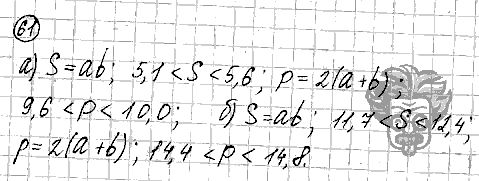 61
а) S=ab; 5,1<S<5,6; p=2(a+b);
9,6<p<10,0; б) S=ab; 11,7<S<12,4;
p=2(a+b); 14,4<p<14,8.